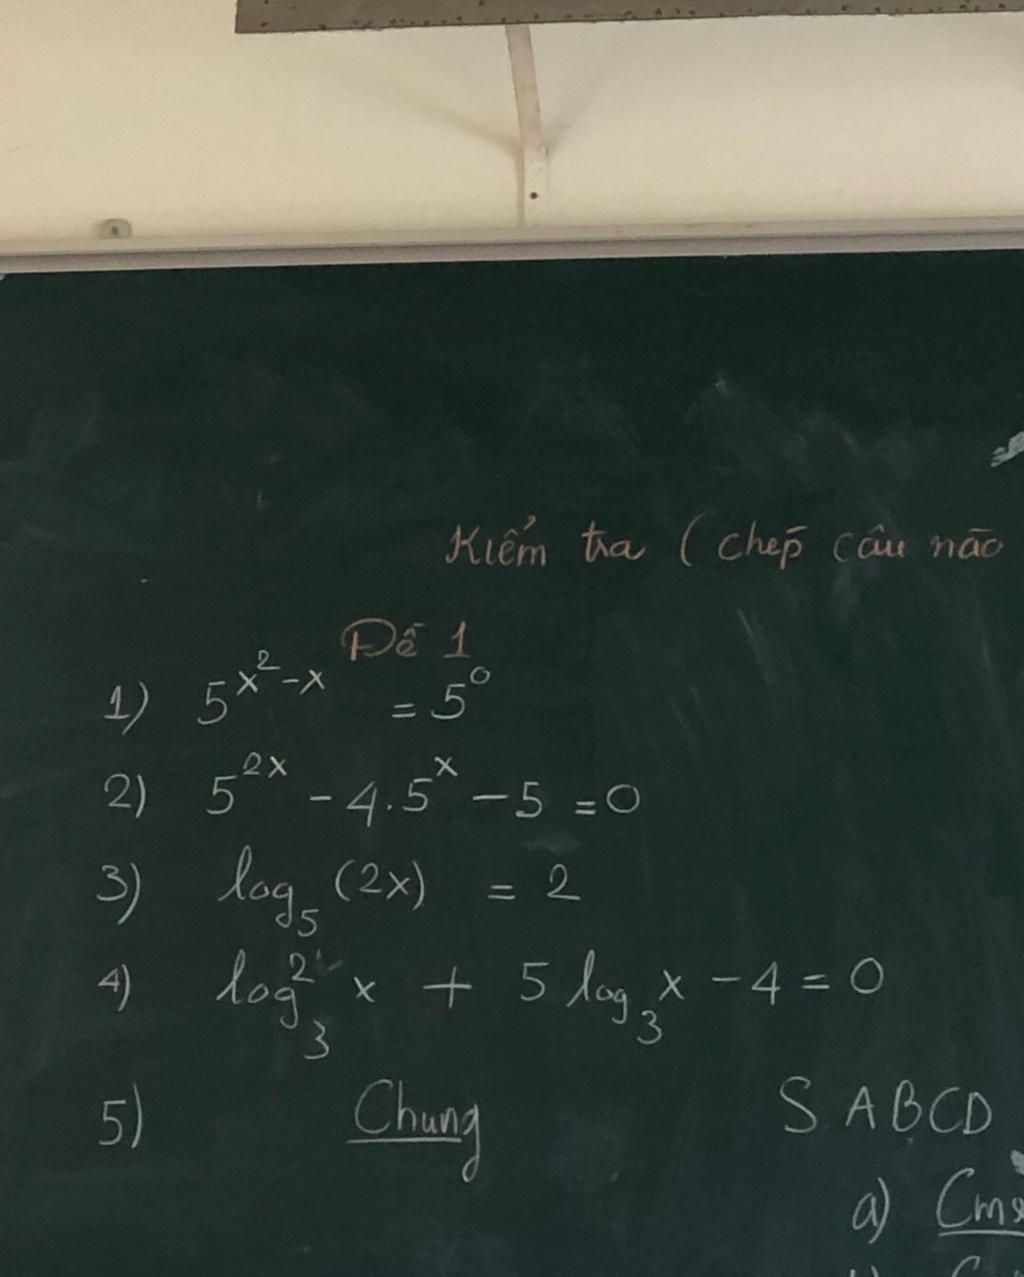 Kiểm tra ( chép câu nào
Đề 1
1) 5^{x^2-x} = 5^0
2) 5^{2x} - 4.5^x - 5 = 0
3) log_5 (2x) = 2
4) log_3^2 x + 5 log_3 x - 4 = 0
5) Chung S ABCD
a)